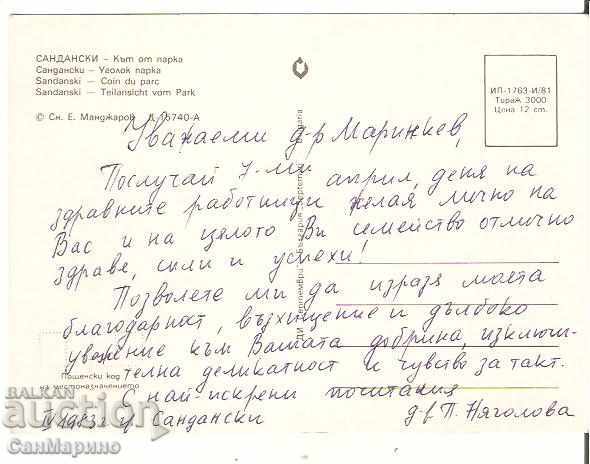 САНДАНСКИ – Кът от парка
Сандански – Уголок парка
Sandanski — Coin du parc
Sandanski — Teilansicht vom Park
© Сн. Е. Манджаров Д-15740-А
ИП-1763-И/81
Тираж 3000
Цена 12 ст.
Уважаеми д-р Маринкев,
Послучай 7-ми април, деня на
здравните работници желая лично на
Вас и на цялото Ви семейство отлично
здраве, сили и успехи!
Позволете ми да изразя моята
благодарност, възхищение и дълбоко
уважение към Вашата добрина, изключи-
телна деликатност и чувство за такт.
Пощенски код
на местоназначението
С най-искрени почитания
IV 1983 г. гр. Сандански
д-р П. Няголова
BALKAN
auction
СанМарино